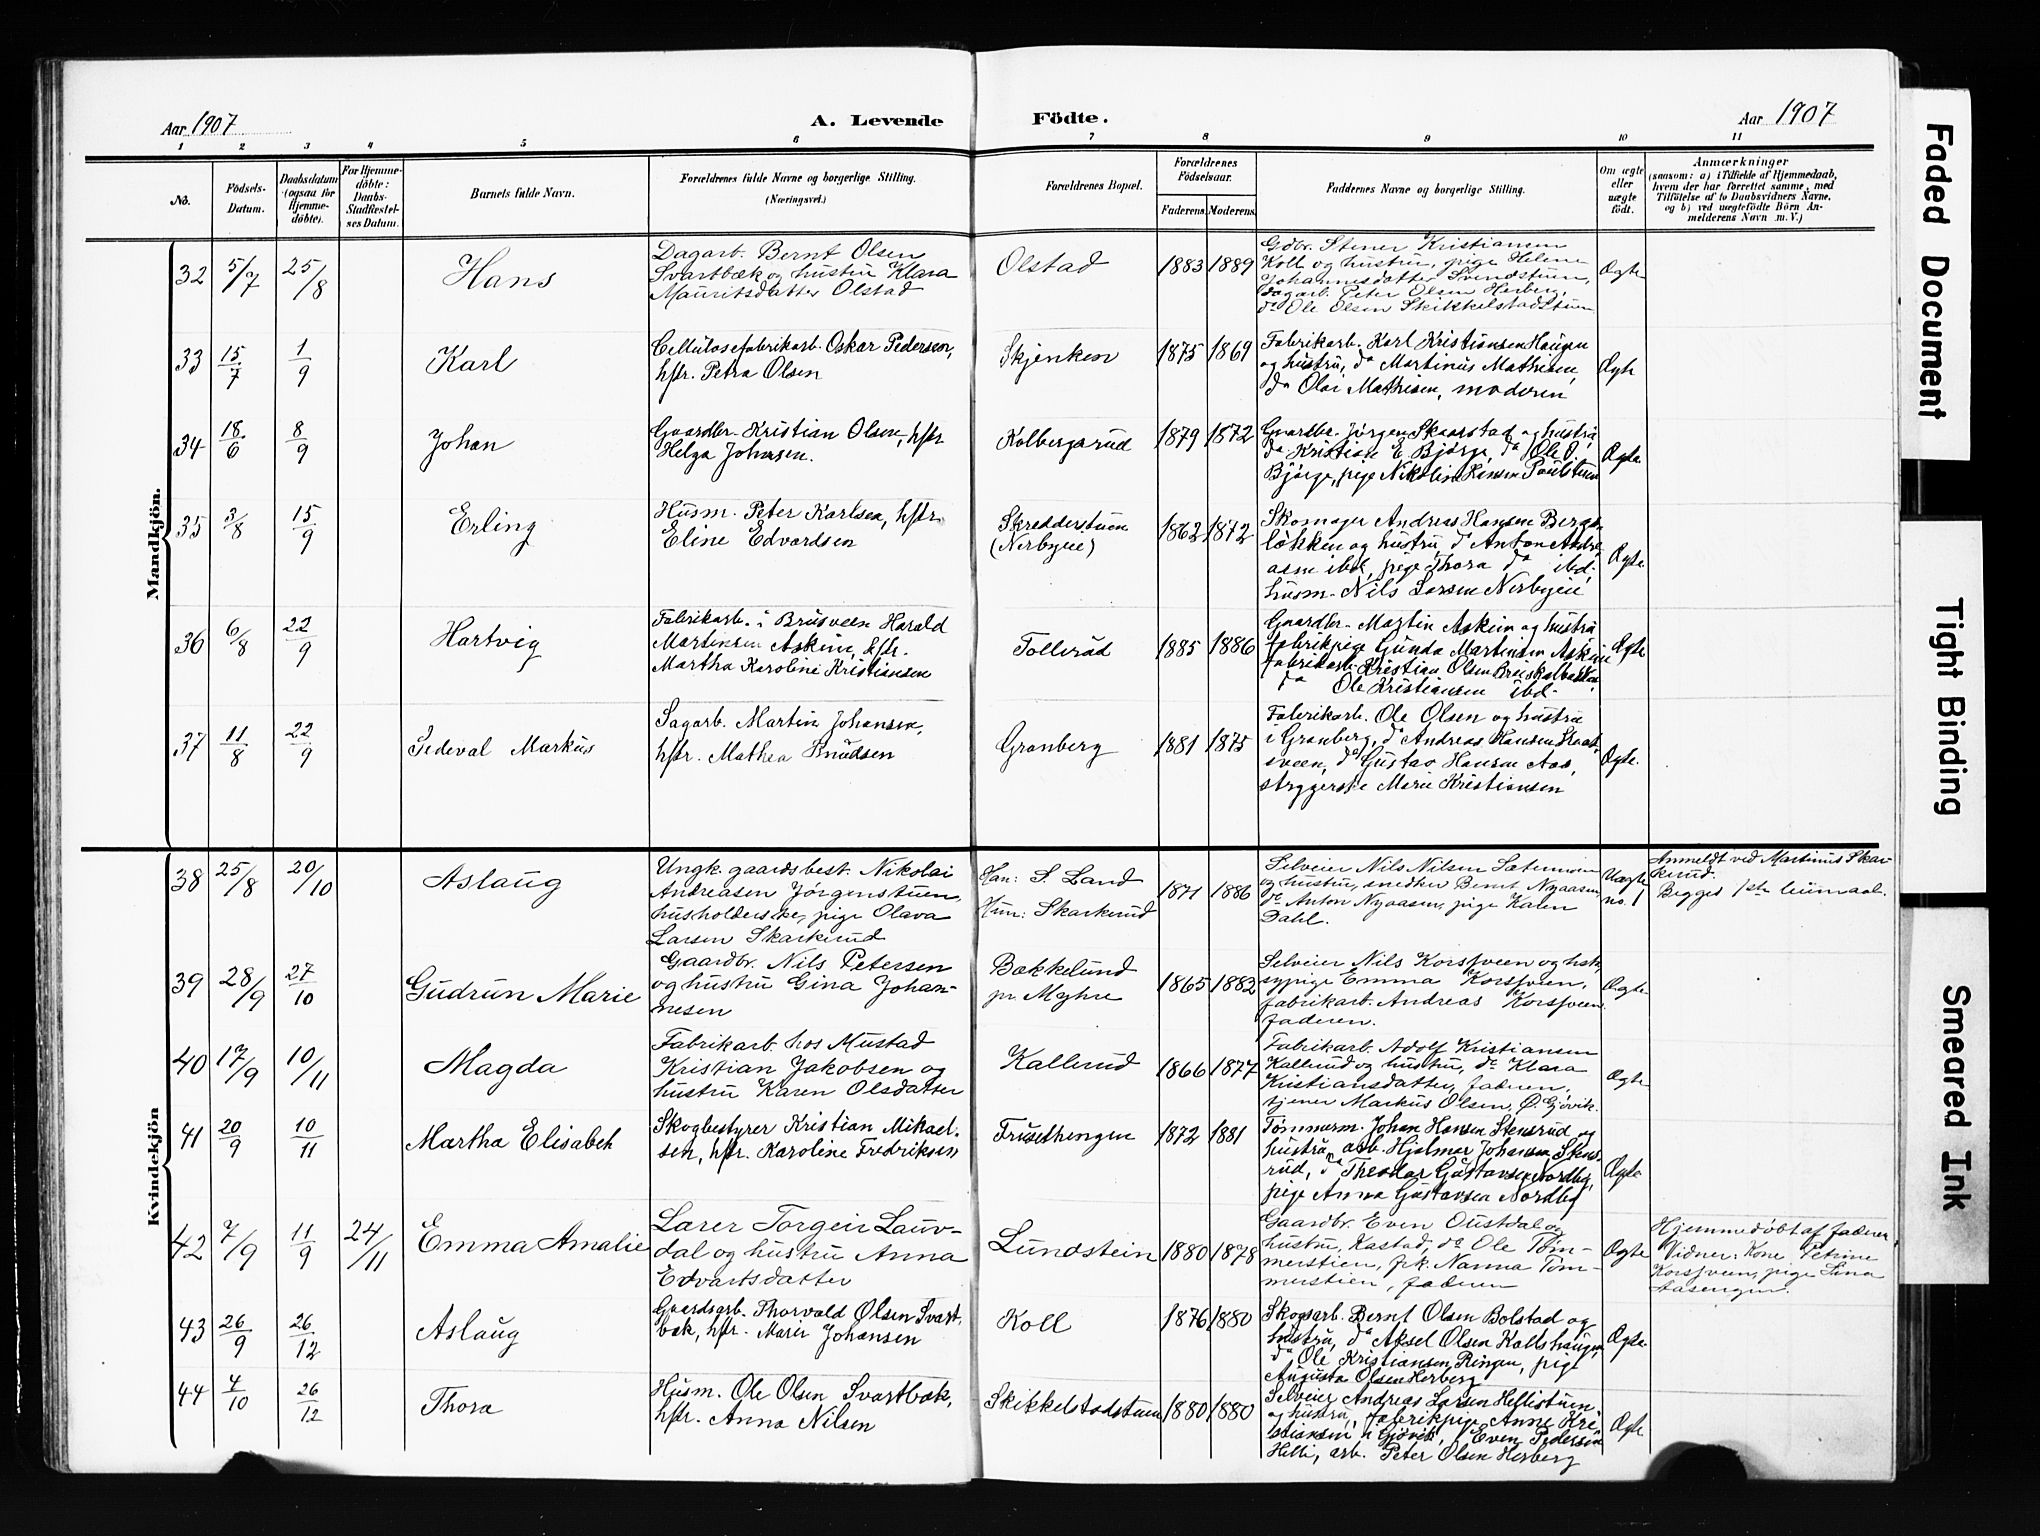 Aar 1907
A. Levende Födte.
Aar 1907
1 2 3 4 5 6 7 8 9 10 11
No.
Födsels-
Datum.
Daabsdatum
(ogsaa for
Hjemme-
döbte).
For Hjemme-
döbte:
Daabs-
Stadfestel-
ses Datum.
Barnets fulde Navn.
Forældrenes fulde Navne og borgerlige Stilling.
(Næringsvei.)
Forældrenes Bopæl.
Forældrenes
Födselsaar.
Faderens. Moderens.
Faddernes Navne og borgerlige Stilling.
Om ægte
eller
uægte
født.
Anmærkninger
(saasom: a) i Tilfælde af Hjemmedaab,
hvem der har forrettet samme, med
Tilföielse af to Daabsvidners Navne.
og b) ved uægtefödte Börn An-
melderens Navn m. V.)
Mandkjön.
32 5/7 25/8 Hans
Dagarb. Bernt Olsen
Svartbæk og hustru Klara
Mauritsdatter Olstad
Olstad 1883 1889
Gdbr. Stener Kristiansen
Koll og hustru, pige Helene
Johannesdatter Svendstuen,
dagarb. Peter Olsen Herberg,
do Ole Olsen Skikkelstadstuen
Ægte
33 15/7 1/9 Karl
Cellulosefabrikarb. Oskar Pedersen,
hstr. Petra Olsen
Skjenken 1875 1869
Fabrikarb. Karl Kristiansen Haugen
og hustru, do Martinus Mathisen,
do Olai Mathisen, moderen
Ægte
34 18/6 8/9 Johan
Gaardbr. Kristian Olsen, hstr.
Helga Johnsen.
Kolbergsrud 1879 1872
Gaardbr. Jörgen Skaarstad og hustru
do Kristian E. Björge, do Ole O.
Björge, pige Nikoline Hansen Paulstuen
Ægte
35 3/8 15/9 Erling
Husm. Peter Karlsen, hstr.
Eline Edvardsen
Skredderstuen
(Nerbyeie)
1862 1872
Skomager Andreas Hansen Bergs-
løkken og hustru, do Anton Andre-
asen ibd, pige Thora do ibd,
husm. Nils Larsen Nerbyeie
Ægte
36 6/8 22/9 Hartvig
Fabrikarb. i Brusveen Harald
Martinsen Askim, hstr.
Martha Karoline Kristiansen
Tollerud 1885 1886
Gaardbr. Martin Askim og hustru
fabrikpige Gunda Martinsen Askim
fabrikarb. Kristian Olsen
do Ole Kristiansen ibd.
Ægte
37 11/8 22/9 Sedeval Markus
Sagarb. Martin Johansen,
hstr. Mathea Knudsen
Granberg 1881 1875
Fabrikarb. Ole Olsen og hustru
i Granberg, do Andreas Hansen Skaat-
sveen, do Gustav Hansen Aas,
strygerske Marie Kristiansen
Ægte
Kvindekjön
38 25/8 20/10 Aslaug
Ungk. gaardsbest. Nikolai
Andreasen Jørgenstuen,
husholderske, pige Olava
Larsen Skarkerud
Han: S. Land
Hun: Skarkerud
1871 1886
Selveier Nils Nilsen
og hustru, snedker Bernt Nyaasen,
do Anton Nyaasen, pige Karen
Dahl.
Uægte
no. 1
Anmeldt ved Martinus Skar-
kerud.
Begges 1ste leiermaal.
39 28/9 27/10 Gudrun Marie
Gaardbr. Nils Petersen
og hustru Gina Johan-
nesen
Bækkelund
pr. Myhre
1865 1882
Selveier Nils Korsveen og hstr,
sypige Emma Korsveen,
fabrikarb. Andreas Korsveen
faderen.
Ægte
40 17/9 10/11 Magda
Fabrikarb. hos Mustad
Kristian Jakobsen og
hustru Karen Olsdatter
Kallerud 1866 1877
Fabrikarb. Adolf Kristiansen
Kallerud og hustru, do Klara
Kristiansdatter, faderen,
tjener Markus Olsen, Ø. Gjøvik.
Ægte
41 20/9 10/11 Martha Elisabeh
Skogbestyrer Kristian Mikael-
sen, hstr. Karoline Fredriksen
Frusethengen 1872 1881
Tömmerm. Johan Hansen Stensrud og
hustru, arb. Hjalmar Johansen Stens-
rud, do Theodor Gustavsen Nordby,
pige Anna Gustavsen Nordby
Ægte
42 7/9 11/9 24/11 Emma Amalie
Lærer Torgeir Lauv-
dal og hustru Anna
Edvartsdatter
Lundstein 1880 1878
Gaardbr. Even Oustdal og
hustru, Kastad, do Ole Töm-
merstien, frk. Nanna Töm-
merstien, faderen
Ægte
Hjemmedøbt af faderen
Vidner: Kone Petrine
Korsveen, pige Lina
Aasengen.
43 26/9 26/12 Aslaug
Gaardsarb. Thorvald Olsen Svart-
bæk, hstr. Marie Johansen
Koll 1876 1880
Skogsarb. Bernt Olsen Bolstad og
hustru, do Aksel Olsen Kollshaugen,
do Ole Kristiansen Ringen, pige
Augusta Olsen Herberg
Ægte
44 4/10 26/12 Thora
Husm. Ole Olsen Svartbæk,
hstr. Anna Nilsen
Skikkelstadstuen 1880 1880
Selveier Andreas Larsen Hellistuen
og hustru, fabrikpige Anne Kri-
stiansen i Gjøvik, Even Pedersen
Helli, arb. Peter Olsen Herberg
Ægte
Faded Document
Tight Binding
Smeared Ink